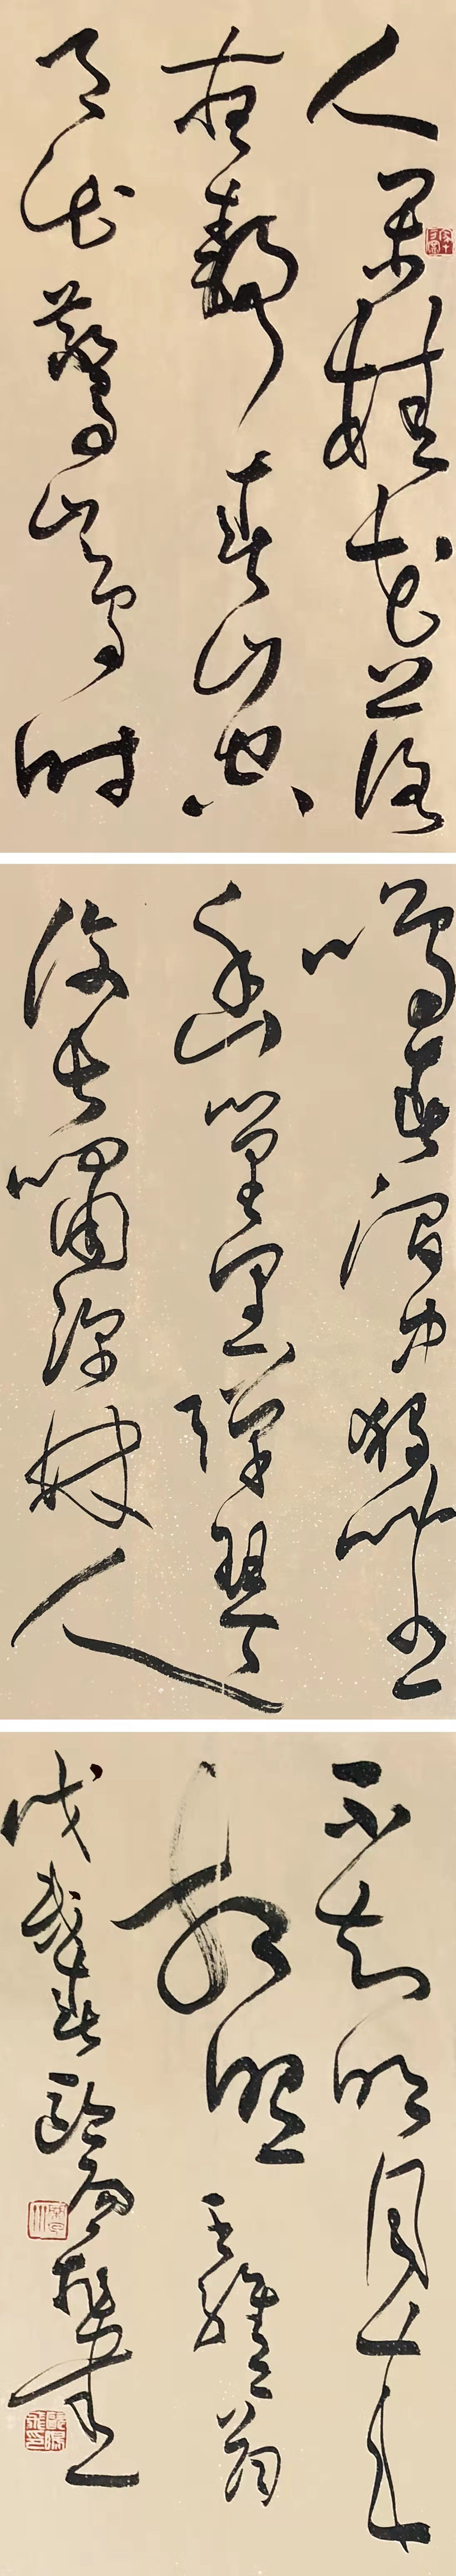 人閒桂花落
夜靜春山空
月出驚山鳥時
鳴春澗中獨坐
幽篁里彈琴
復長嘯深林人
不知明月來
相照王維
戊戌春書